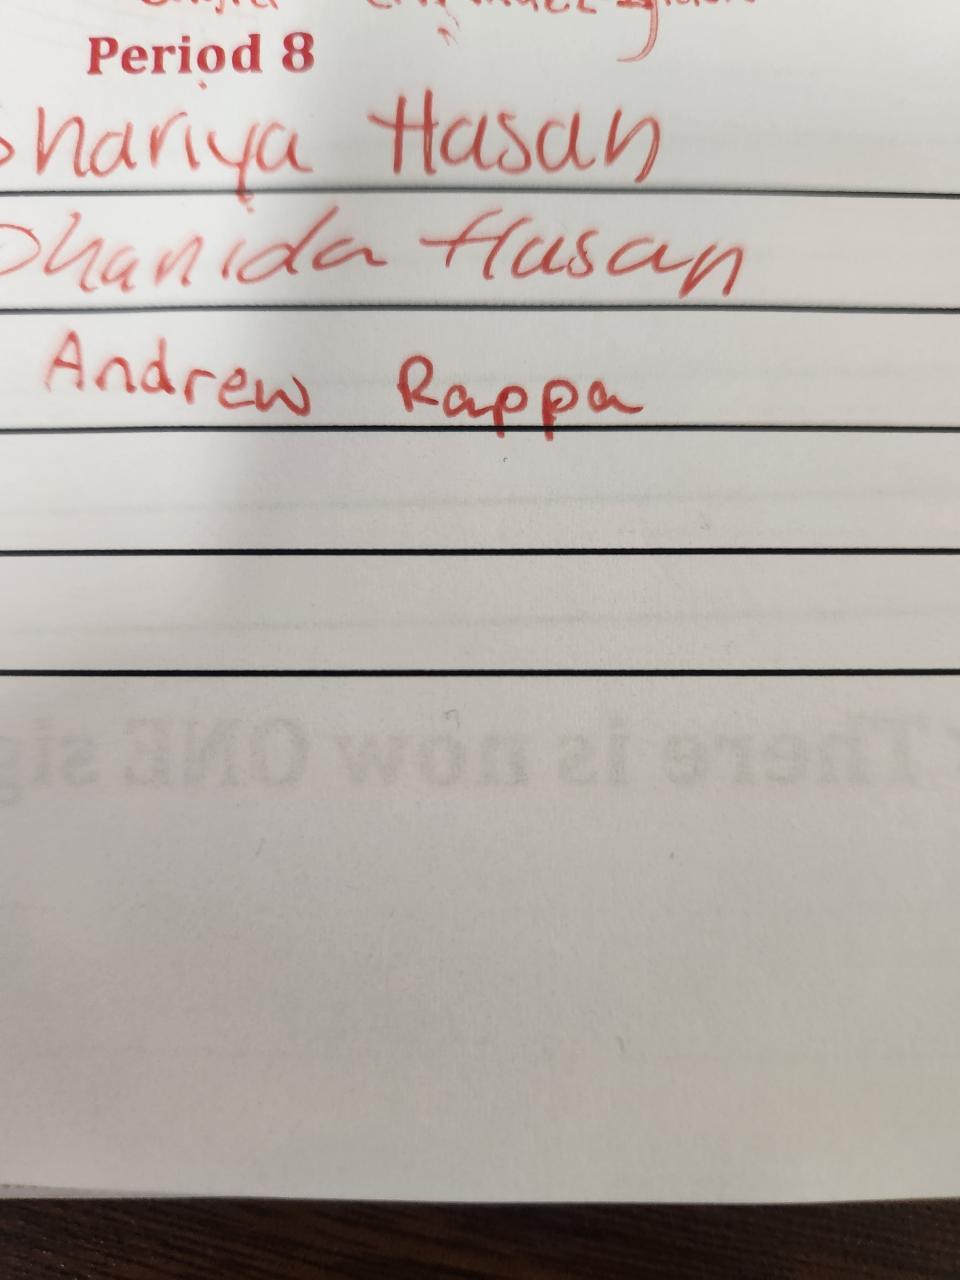 Period 8
Shariya Hasan
Hasan
Andrew Rappa
There is now ONE